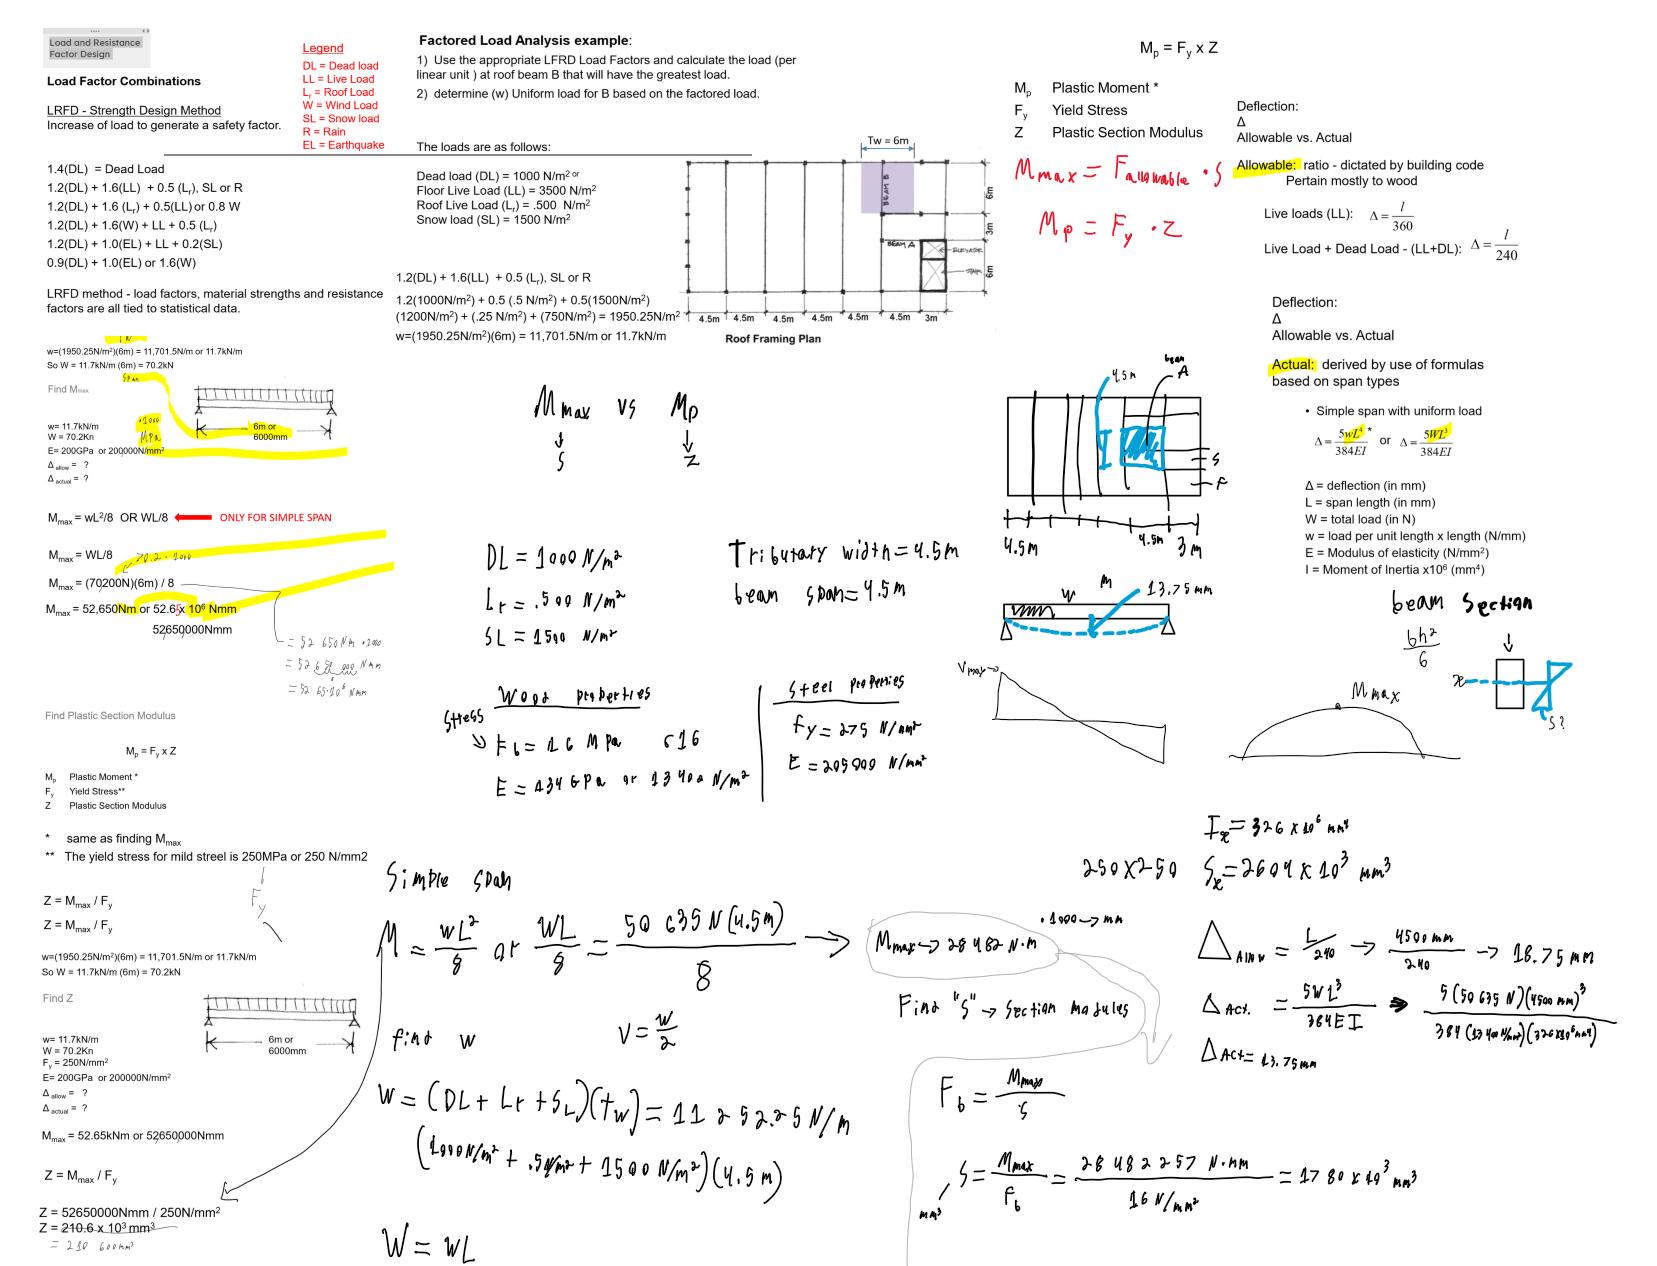 Load and Resistance
Factor Design
Load Factor Combinations
LRFD - Strength Design Method
Increase of load to generate a safety factor.
1.4(DL) = Dead Load
1.2(DL) + 1.6(LL) + 0.5 (Lr), SL or R
1.2(DL) + 1.6 (Lr) + 0.5(LL) or 0.8 W
1.2(DL) + 1.6(W) + LL + 0.5 (Lr)
1.2(DL) + 1.0(EL) + LL + 0.2(SL)
0.9(DL) + 1.0(EL) or 1.6(W)
LRFD method - load factors, material strengths and resistance
factors are all tied to statistical data.
Legend
DL = Dead load
LL = Live Load
Lr = Roof Load
W = Wind Load
SL = Snow load
R = Rain
EL = Earthquake
Factored Load Analysis example:
1) Use the appropriate LFRD Load Factors and calculate the load (per
linear unit ) at roof beam B that will have the greatest load.
2) determine (w) Uniform load for B based on the factored load.
The loads are as follows:
Dead load (DL) = 1000 N/m² or
Floor Live Load (LL) = 3500 N/m²
Roof Live Load (Lr) = .500 N/m²
Snow load (SL) = 1500 N/m²
1.2(DL) + 1.6(LL) + 0.5 (Lr), SL or R
1.2(1000N/m²) + 0.5 (.5 N/m²) + 0.5(1500N/m²)
(1200N/m²) + (.25 N/m²) + (750N/m²) = 1950.25N/m²
w=(1950.25N/m²)(6m) = 11,701.5N/m or 11.7kN/m
Tw = 6m
BEAM B
BEAM A
6m
3m
6m
4.5m 4.5m 4.5m 4.5m 4.5m 4.5m 3m
Roof Framing Plan
Mp = Fy x Z
Mp Plastic Moment *
Fy Yield Stress
Z Plastic Section Modulus
Mmax = Fallowable · S
Mp = Fy · Z
Deflection:
Δ
Allowable vs. Actual
Allowable: ratio - dictated by building code
Pertain mostly to wood
Live loads (LL): Δ = l/360
Live Load + Dead Load - (LL+DL): Δ = l/240
Deflection:
Δ
Allowable vs. Actual
Actual: derived by use of formulas
based on span types
• Simple span with uniform load
Δ = 5wL⁴/384EI * or Δ = 5WL³/384EI
Δ = deflection (in mm)
L = span length (in mm)
W = total load (in N)
w = load per unit length x length (N/mm)
E = Modulus of elasticity (N/mm²)
I = Moment of Inertia x10⁶ (mm⁴)
w=(1950.25N/m²)(6m) = 11,701.5N/m or 11.7kN/m
So W = 11.7kN/m (6m) = 70.2kN
Span
Find Mmax
·1000
MPa
6m or
6000mm
w= 11.7kN/m
W = 70.2Kn
E= 200GPa or 200000N/mm²
Δ allow = ?
Δ actual = ?
Mmax = wL²/8 OR WL/8
ONLY FOR SIMPLE SPAN
Mmax = WL/8
70.2 · 1000
Mmax = (70200N)(6m) / 8
Mmax = 52,650Nm or 52.65x 10⁶ Nmm
52650000Nmm
= 52 650 Nm · 1000
= 52 650 000 Nmm
= 52.65·10⁶ Nmm
Find Plastic Section Modulus
Mp = Fy x Z
Mp Plastic Moment *
Fy Yield Stress**
Z Plastic Section Modulus
* same as finding Mmax
** The yield stress for mild streel is 250MPa or 250 N/mm2
Fy
Z = Mmax / Fy
Z = Mmax / Fy
w=(1950.25N/m²)(6m) = 11,701.5N/m or 11.7kN/m
So W = 11.7kN/m (6m) = 70.2kN
Find Z
6m or
6000mm
w= 11.7kN/m
W = 70.2Kn
Fy = 250N/mm²
E= 200GPa or 200000N/mm²
Δ allow = ?
Δ actual = ?
Mmax = 52.65kNm or 52650000Nmm
Z = Mmax / Fy
Z = 52650000Nmm / 250N/mm²
Z = 210.6 x 10³ mm³
= 210 600mm³
Mmax vs Mp
↓ ↓
S Z
DL = 1000 N/m²
Lr = .500 N/m²
SL = 1500 N/m²
Tributary width = 4.5m
beam span = 4.5m
Wood properties
Stress
Fb = 16 MPa
E = 134 GPa or 13400 N/mm²
Steel properties
fy = 275 N/mm²
E = 205000 N/mm²
4.5m
beam
A
S
F
4.5m
4.5m
3m
w
M
13.75mm
Vmax
Mmax
beam Section
bh²/6
x
S?
Ix = 326 x 10⁶ mm⁴
250x250 Sx = 2604 x 10³ mm³
Simple span
M = wL²/8 or WL/8 = 50 635 N (4.5m)/8 →
Mmax → 28482 N·m
·1000 → mm
Find "S" → Section modules
find w
V = w/2
w = (DL + Lr + SL)(tw) = 11 252.25 N/m
(1000N/m² + .5N/m² + 1500 N/m²)(4.5m)
W = wL
Fb = Mmax/S
S = Mmax/Fb = 28 482 257 N·mm/16 N/mm² = 1780 x 10³ mm³
mm³
Δ Allow = L/240 → 4500mm/240 → 18.75mm
Δ Act. = 5WL³/384EI → 5(50635 N)(4500mm)³/384(13400N/mm²)(326x10⁶mm⁴)
Δ Act = 13.75mm